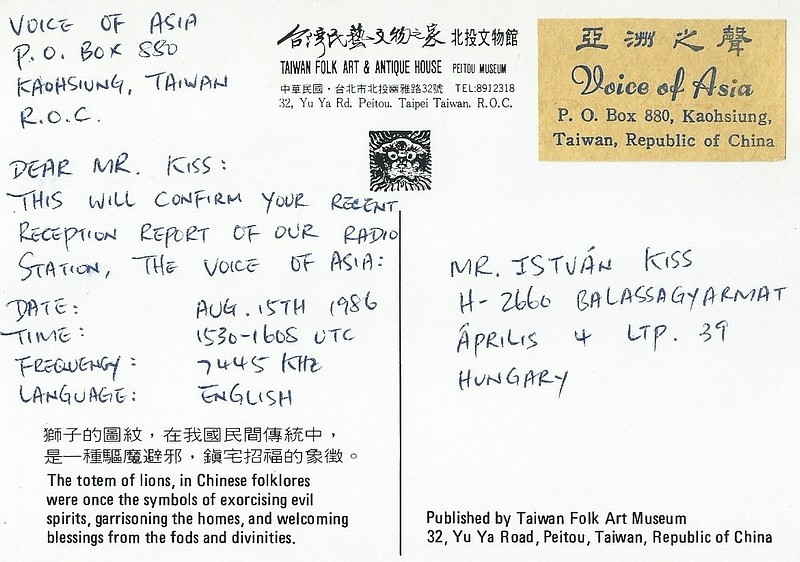 VOICE OF ASIA
P.O. BOX 880
KAOHSIUNG, TAIWAN
R.O.C.
台灣民藝文物之家 北投文物館
TAIWAN FOLK ART & ANTIQUE HOUSE PEITOU MUSEUM
中華民國·台北市北投幽雅路32號 TEL:8912318
32, Yu Ya Rd. Peitou. Taipei Taiwan. R.O.C.
亞洲之聲
Voice of Asia
P. O. Box 880, Kaohsiung,
Taiwan, Republic of China
DEAR MR. KISS:
THIS WILL CONFIRM YOUR RECENT
RECEPTION REPORT OF OUR RADIO
STATION, THE VOICE OF ASIA:
DATE: AUG. 15TH 1986
TIME: 1530-1605 UTC
FREQUENCY: 7445 KHz
LANGUAGE: ENGLISH
MR. ISTVÁN KISS
H-2660 BALASSAGYARMAT
ÁPRILIS 4 LTP. 39
HUNGARY
獅子的圖紋，在我國民間傳統中，
是一種驅魔避邪，鎮宅招福的象徵。
The totem of lions, in Chinese folklores
were once the symbols of exorcising evil
spirits, garrisoning the homes, and welcoming
blessings from the fods and divinities.
Published by Taiwan Folk Art Museum
32, Yu Ya Road, Peitou, Taiwan, Republic of China